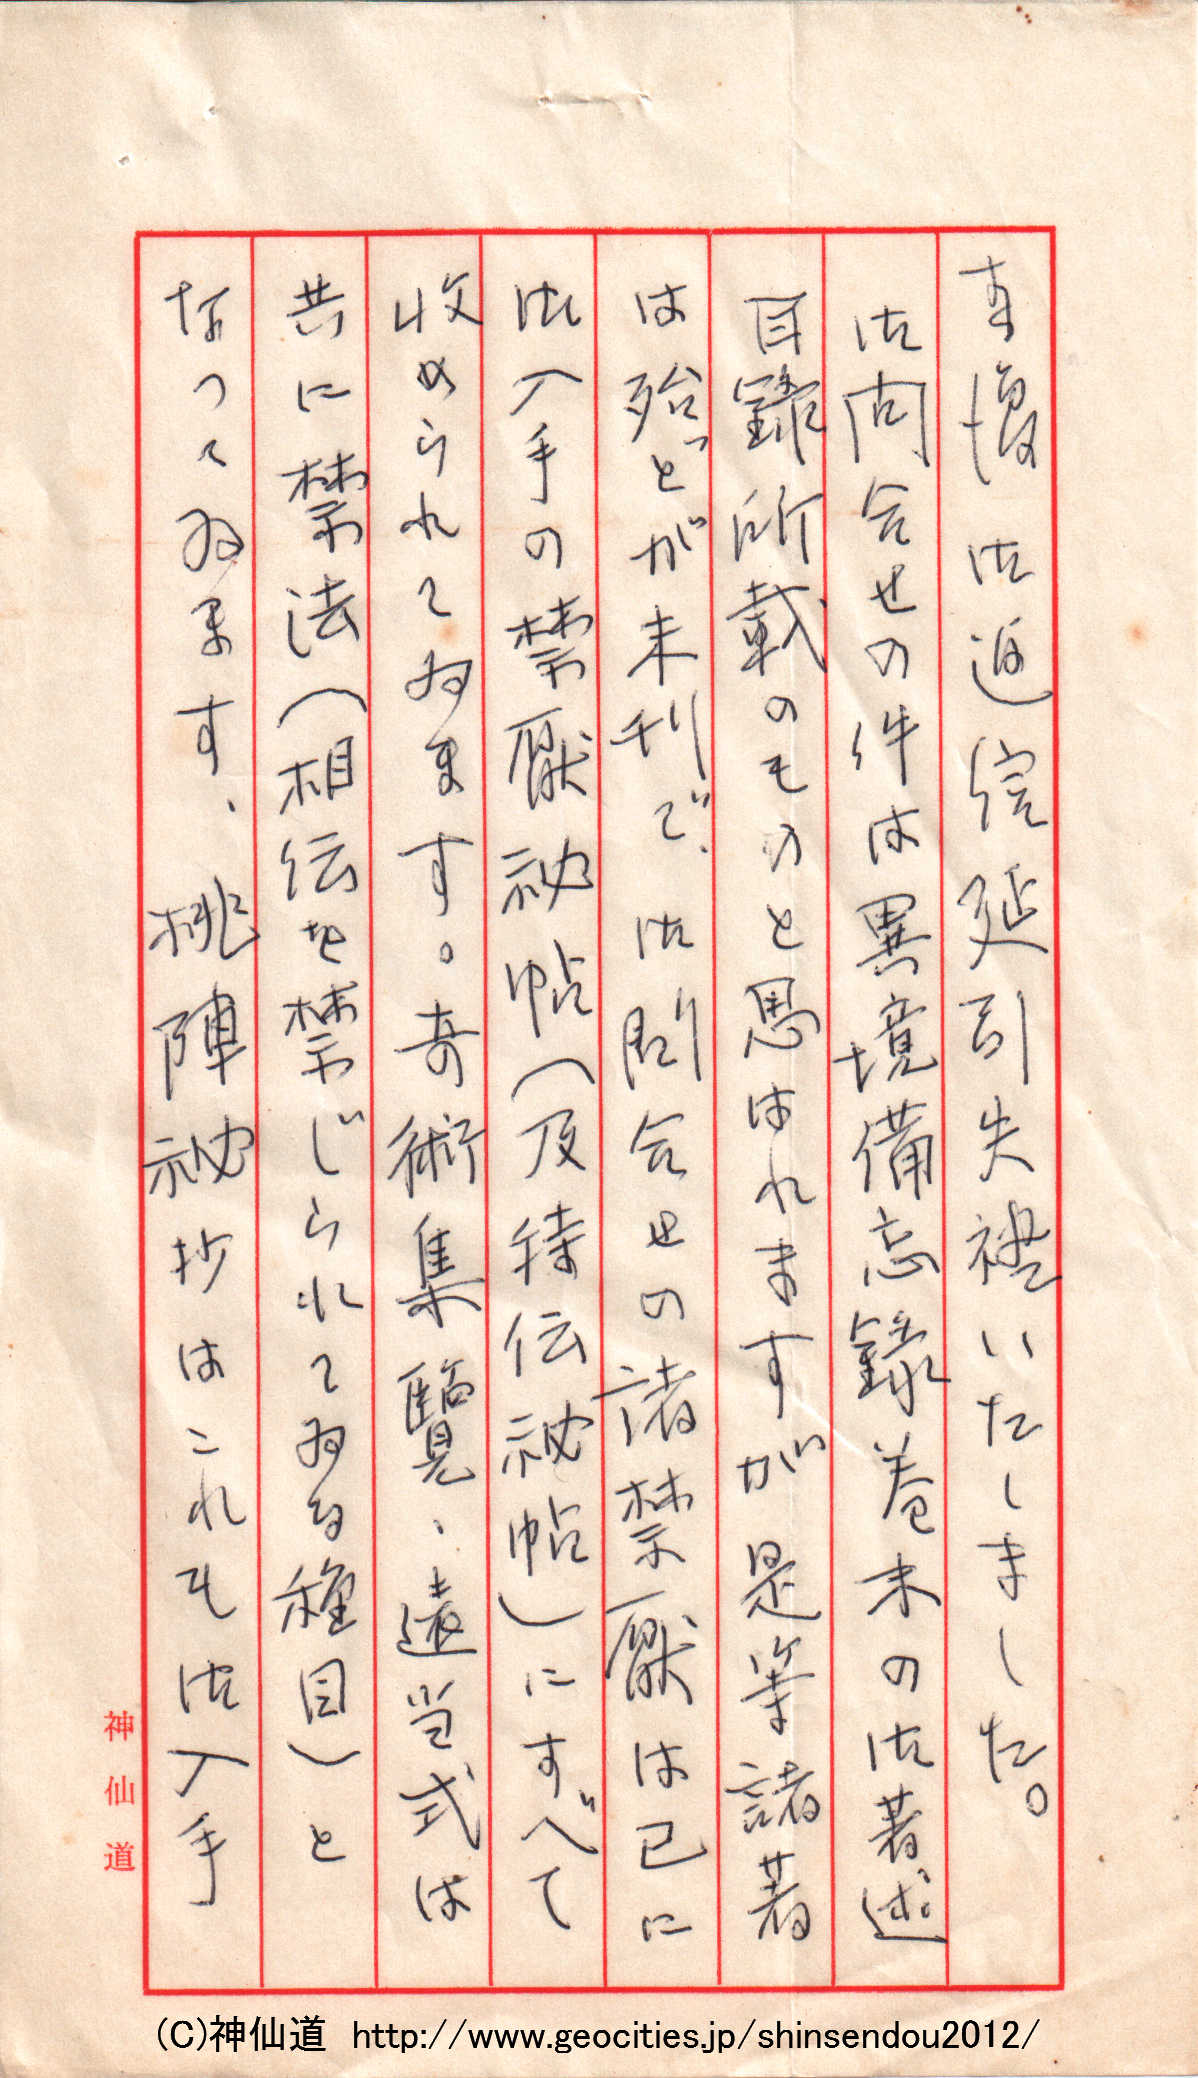 拝復 御返信延引失礼いたしました。
御問合せの件は異境備忘録巻末の御著述
目録所載のものと思はれますが是等諸著
は殆どが未刊で、御問合せの諸禁厭は已に
御入手の禁厭秘帖(及特伝秘帖)にすべて
収められてゐます。奇術集覧、遠当式は
共に禁法(相伝を禁じられてゐる種目)と
なってゐます、桃陣秘抄はこれも御入手
神仙道
(C)神仙道 http://www.geocities.jp/shinsendou2012/